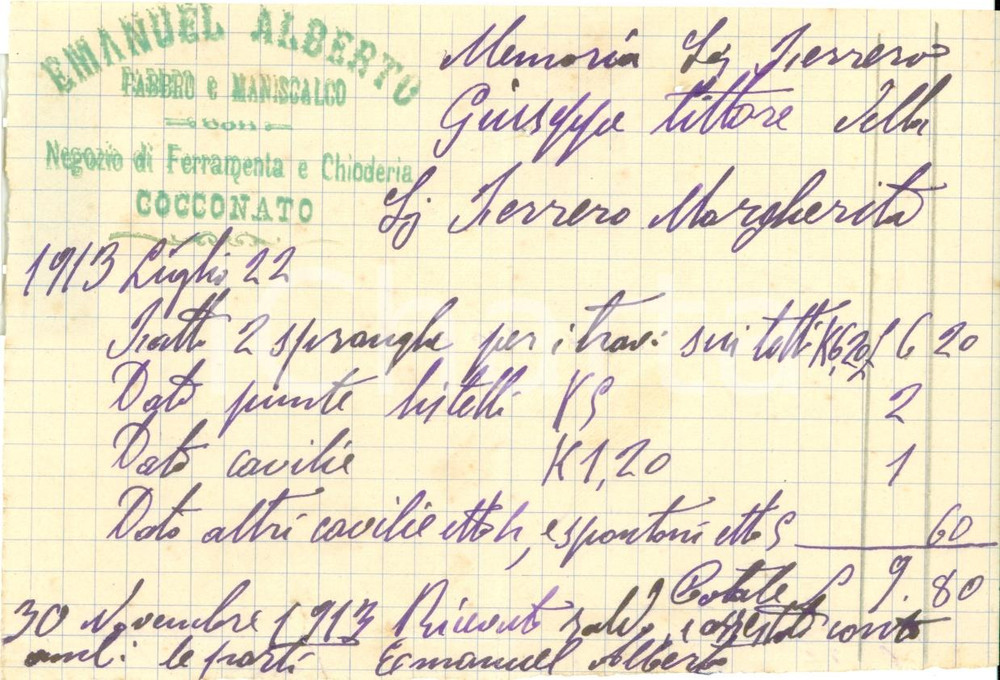 EMANUEL ALBERTO
FABBRO e MANISCALCO
CON
Negozio di Ferramenta e Chioderia
COCCONATO
Memoria Sg Ferrero
Giuseppe tittore della
Sg Ferrero Margherita
1913 Luglio 22
Fatto 2 spranghe per i travi sui tetti K 6,20 £ 6 20
Dato punte listelli K 5 2
Dato cavilie K 1,20 1
Dato altri cavilie etto 4, e spontoni etto 5 60
Totale £ 9.80
30 Novembre 1913 Ricevuto saldo conto
le parti Emanuel Alberto